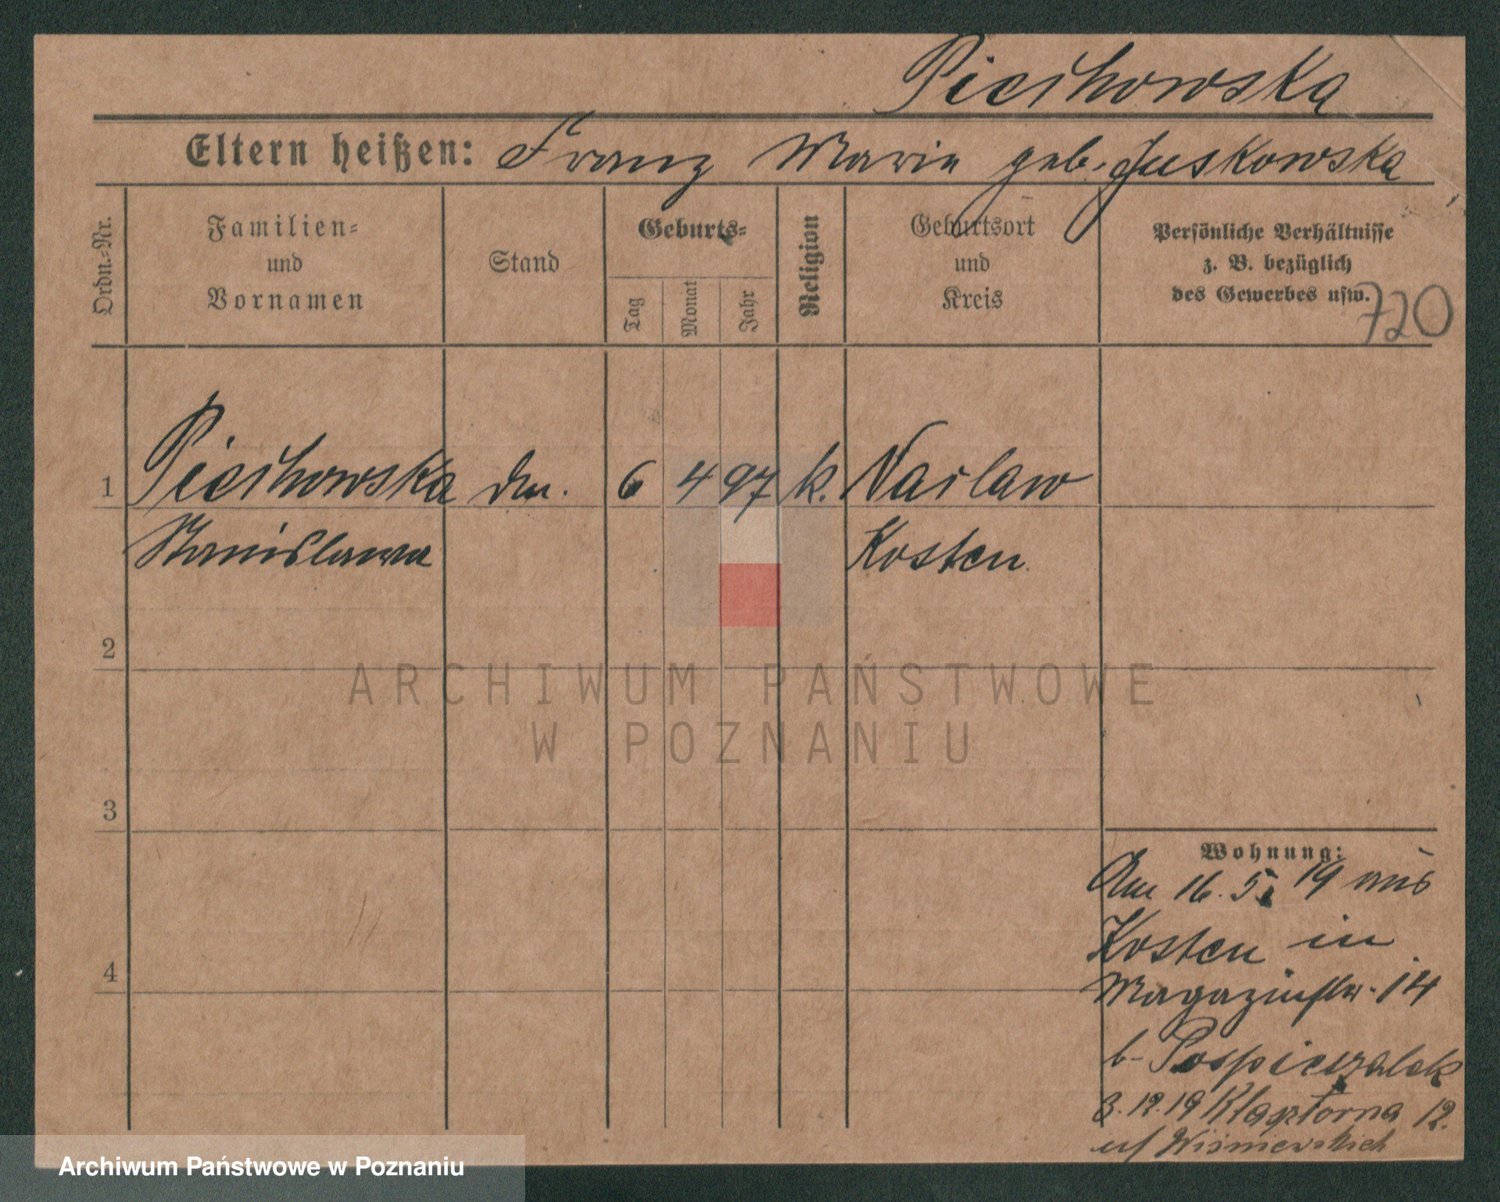 Piechowska
Eltern heißen: Franz Marie geb. Juskowska
Ordn.-Nr.
Familien-
und
Vornamen
Stand
Geburts-
Tag
Monat
Jahr
Religion
Geburtsort
und
Kreis
Persönliche Verhältnisse
z. B. bezüglich
des Gewerbes usw.
720
1 Piechowska Dm. 6 4 97 k. Naclaw
Stanislawa Kosten
2
3
4
Wohnung:
Am 16. 5. 19 aus
Kosten in
Magazinstr. 14
b- Pospieszalek
3.12.19 Klasztorna 12.
ARCHIWUM PAŃSTWOWE
W POZNANIU
Archiwum Państwowe w Poznaniu